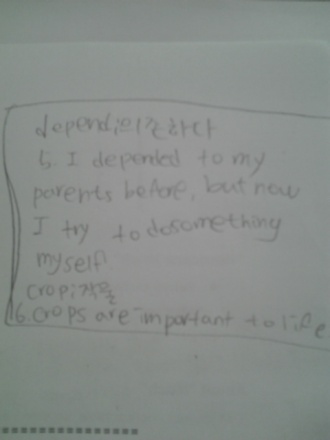 depend;의존하다
5. I depended to my
parents before, but now
I try to dosomething
myself
crop;작물
6. crops are important to life